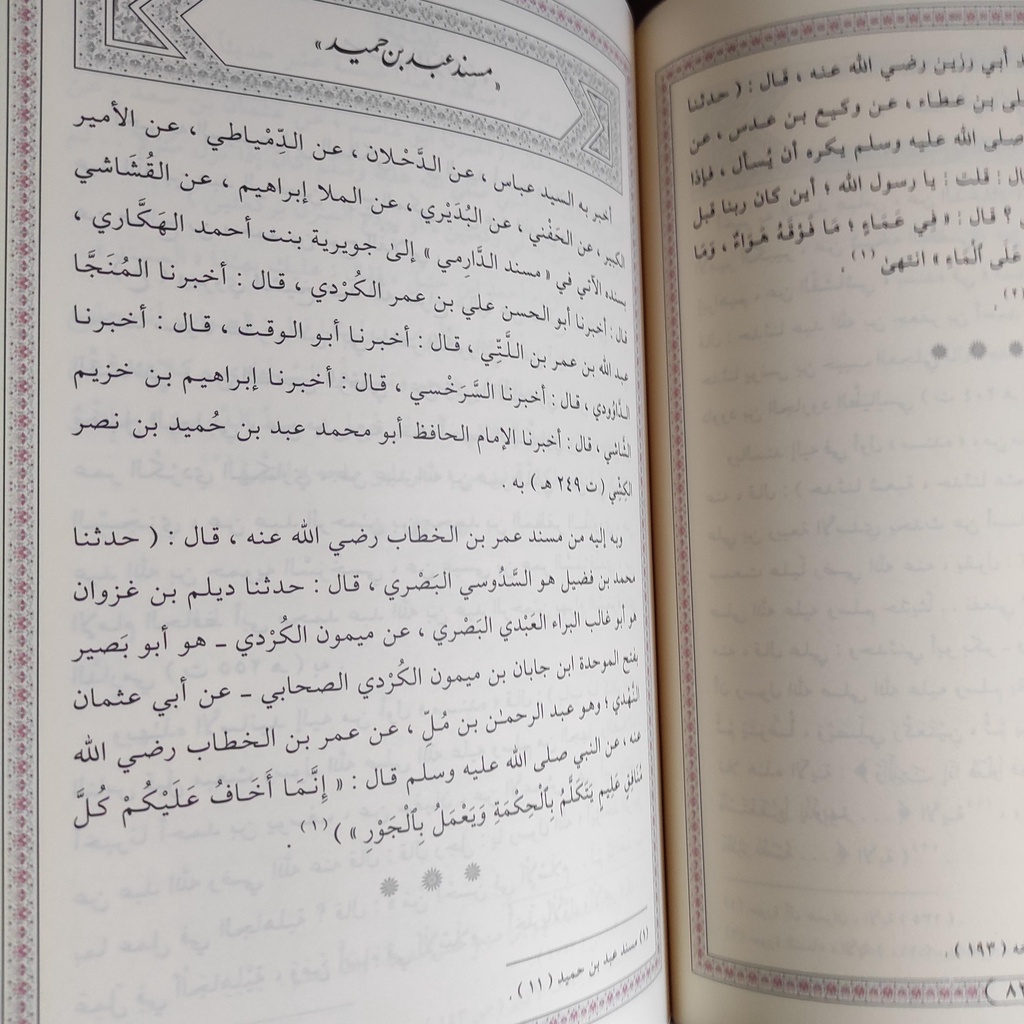 د أبي رزين رضي الله عنه ، قال : ( حدثنا
لى بن عطاء ، عن وكيع بن عدس ، عن
صلى الله عليه وسلم يكره أن يُسأل ، فإذا
ال : قلت : يا رسول الله ؛ أين كان ربنا قبل
؟ قال : « فِي عَمَاءٍ ؛ مَا فَوْقَهُ هَوَاءٌ ، وَمَا
عَلَى ٱلْمَاءِ » انتهىٰ (١) .
(٢)
ـه ( ١٩٣ ) .
« مسند عبد بن حميد »
أخبر به السيد عباس ، عن الدَّحْلان ، عن الدِّمْياطي ، عن الأمير
الكبير ، عن الحَفْني ، عن البُدَيْري ، عن الملا إبراهيم ، عن القُشَاشي
بسنده الآتي في « مسند الدَّارِمي » إلىٰ جويرية بنت أحمد الهَكَّاري ،
قال : أخبرنا أبو الحسن علي بن عمر الكُرْدي ، قال : أخبرنا المُنَجَّا
عبد الله بن عمر بن اللَّتِّي ، قال : أخبرنا أبو الوقت ، قال : أخبرنا
الدَّاوُودي ، قال : أخبرنا السَّرَخْسي ، قال : أخبرنا إبراهيم بن خزيم
الشَّاشي ، قال : أخبرنا الإمام الحافظ أبو محمد عبد بن حُميد بن نصر
الكِسِّي ( ت ٢٤٩ هـ ) به .
وبه إليه من مسند عمر بن الخطاب رضي الله عنه ، قال : ( حدثنا
محمد بن فضيل هو السَّدُوسي البَصْري ، قال : حدثنا ديلم بن غزوان
هو أبو غالب البراء العَبْدي البَصْري ، عن ميمون الكُرْدي ـ هو أبو بَصير
بفتح الموحدة ابن جابان بن ميمون الكُرْدي الصحابي ـ عن أبي عثمان
النَّهدي ؛ وهو عبد الرحمـٰن بن مُلٍّ ، عن عمر بن الخطاب رضي الله
عنه ، عن النبي صلى الله عليه وسلم قال : « إِنَّمَا أَخَافُ عَلَيْكُمْ كُلَّ
مُنَافِقٍ عَلِيمٍ يَتَكَلَّمُ بِٱلْحِكْمَةِ وَيَعْمَلُ بِٱلْجَوْرِ » ) (١) .
(١) مسند عبد بن حميد ( ١١ ) .